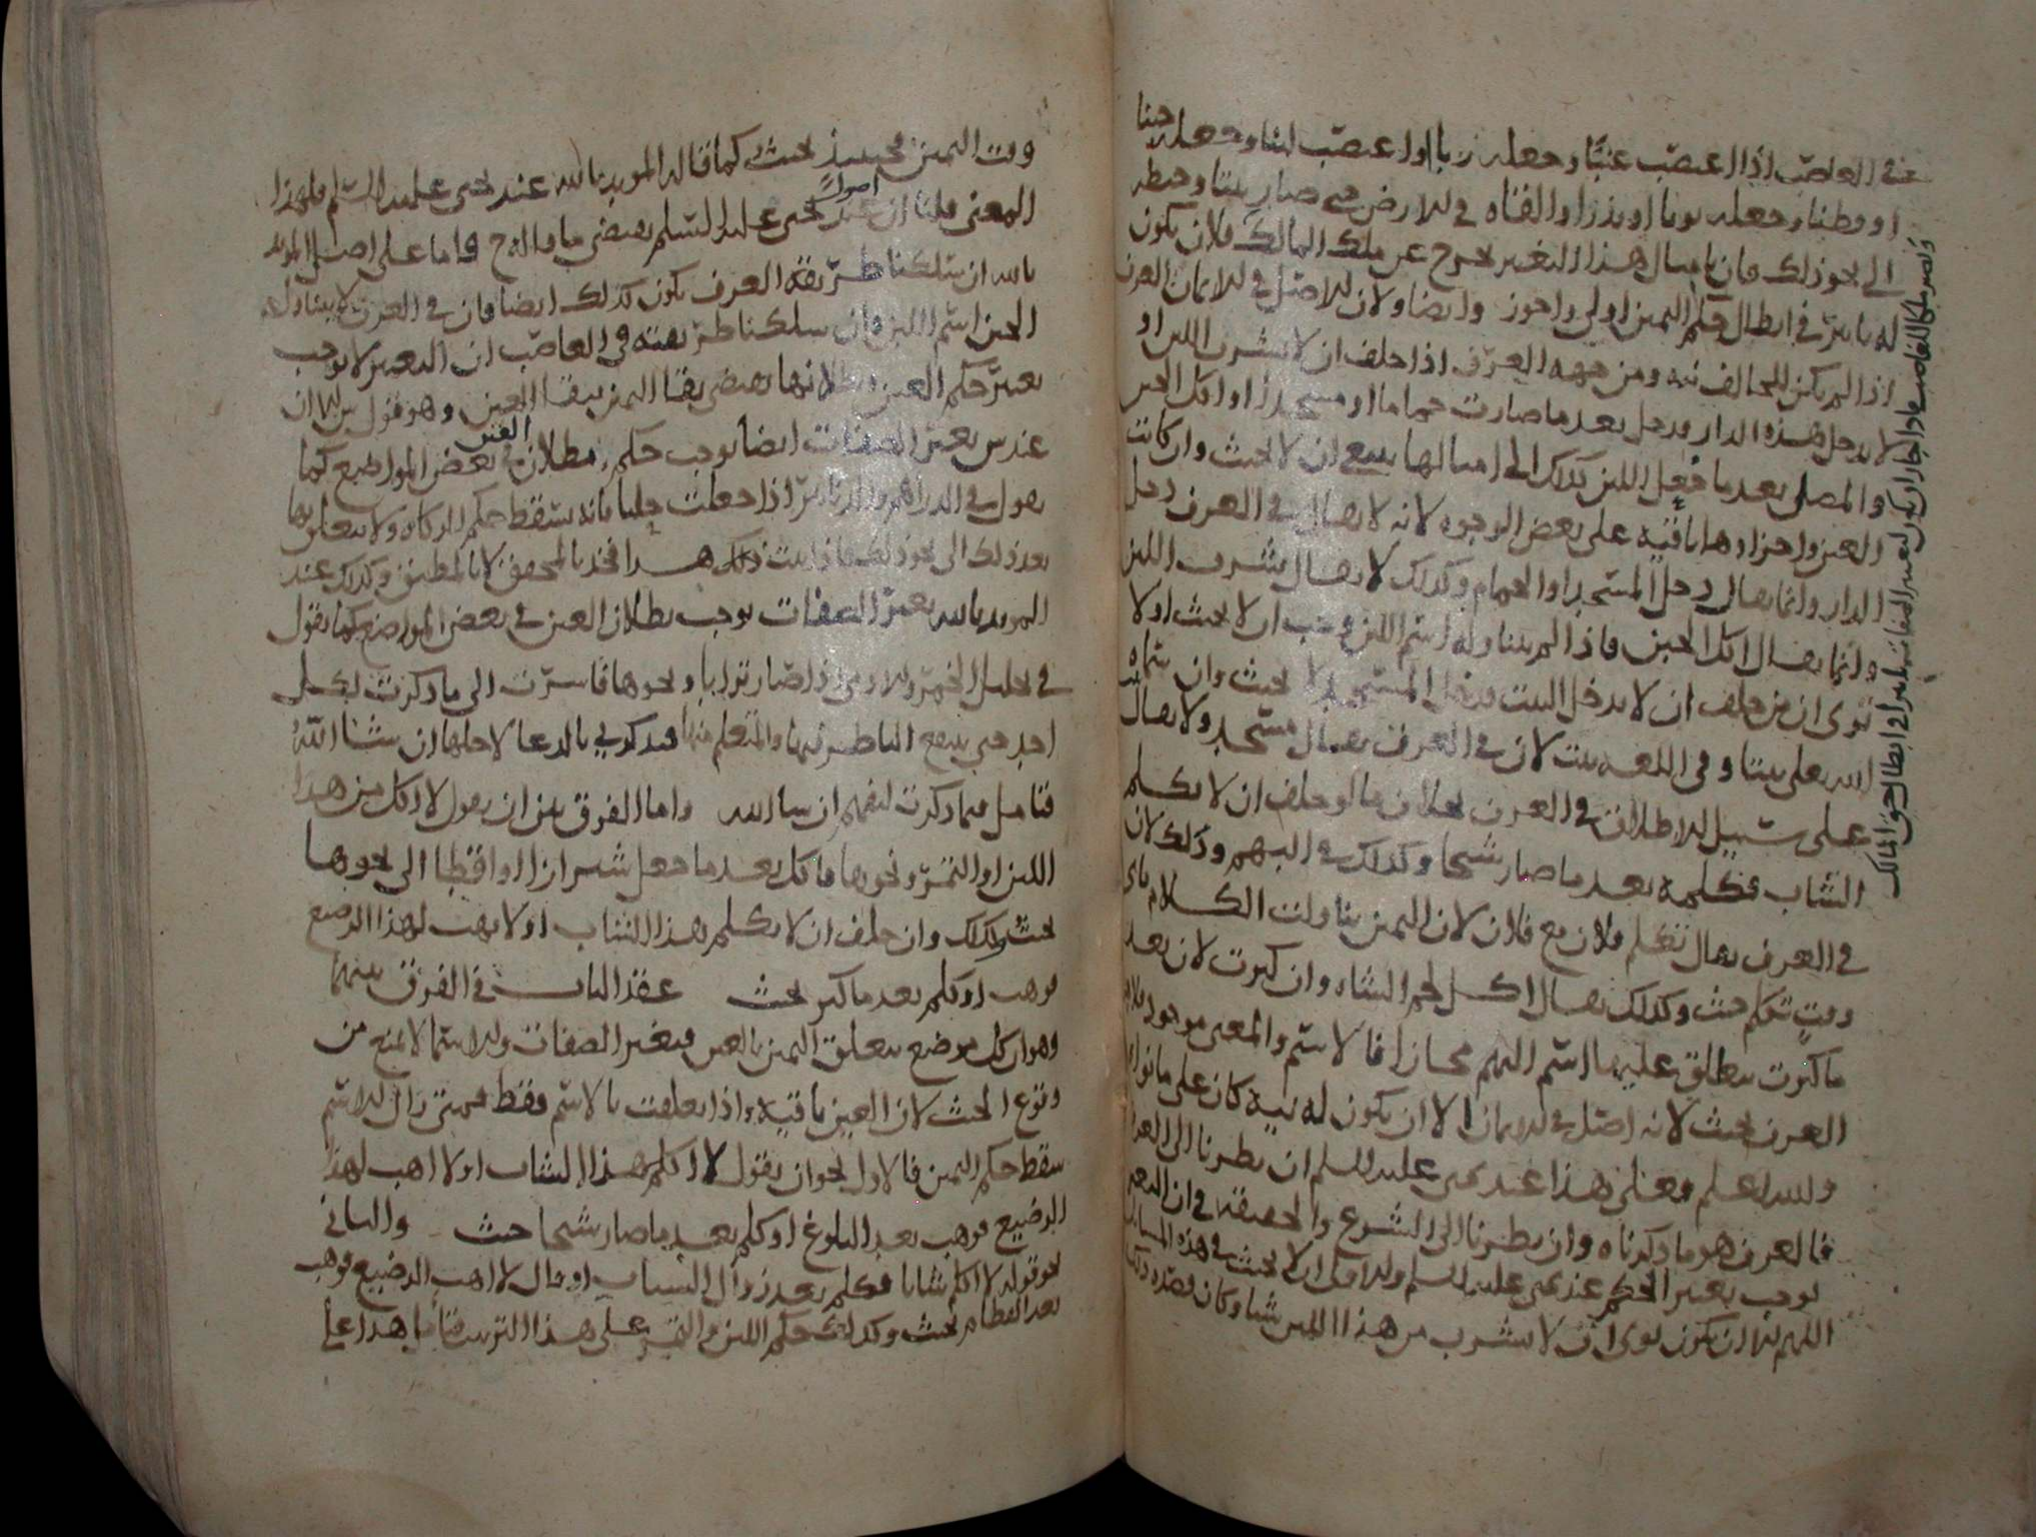 في الغاصب اذا اغتصب عنبا وجعله زبا او اغتصب لبنا وجعله جبنا
او قطنا وجعله ثوبا او بذرا والقاه في الارض حتى صار نبتا وحنطه
الى نحو ذلك فان بامثال هذا التغير يخرج عن ملك المالك فلان يكون
له تاثير في ابطال حكم اليمين اولى واحوز وايضا ولان الاصل في الايمان العرف
اذا لم يكن للحالف نيه ومن جهه العرف اذا حلف ان لا يشرب اللبن او
لا يدخل هذه الدار فدخل بعد ما صارت حماما او مسجدا او اكل الجبن
والمصل بعد ما فعل اللبن كذلك الى امثالها ان لا يحنث وان كانت
العين واجزاوها باقيه على بعض الوجوه لانه لا يقال في العرف دخل
الدار وانما يقال دخل المسجد او الحمام وكذلك لا يقال شرب اللبن
وانما يقال اكل الجبن فاذا لم يتناوله اسم اللبن وجب ان لا يحنث اولا
ترى ان من حلف ان لا يدخل البيت فدخل المسجد لا يحنث وان سماه
الله تعلى بيتا وفي اللغه بيت لان في العرف يقال مسجد ولا يقال بيت
على سبيل الاطلاق في العرف بخلاف ما لو حلف ان لا يكلم
الشاب فكلمه بعد ما صار شيخا وكذلك في البهم وذلك لان
في العرف يقال تكلم فلان مع فلان لان اليمين تناولت الكلام فاى
وقت تكلم حنث وكذلك يقال اكل لحم الشاه وان كبرت لان بعد
ما كبرت ينطلق عليها اسم البهم مجازا فالاسم والمعنى موجود
العرف يحنث لانه اصل في الايمان الا ان يكون له نيه كان على ما نواه
والله اعلم فعلى هذا عند يحى عليه السلم ان نظرنا الى العرف
فالعرف هو ما ذكرناه وان نظرنا الى الشرع والحقيقه في ان التغير
يوجب تغير الحكم عند يحى عليه السلم ان لا يحنث في هذه المسايل
اللهم الا ان يكون نوى ان لا يشرب من هذا اللبن شيا وكان قصده ذلك
ونصير ملكا للغاصب اذا جاز ان يكون لتغير الصفات تاثير في ابطال حق المالك
وقت اليمين فحينئذ يحنث كما قاله المويد بالله عند يحى عليه السلم فلهذا
المعنى قلنا ان عند اصول يحى عليه السلم يقتضي ما قاله ح واما على اصل المويد
بالله ان سلكنا طريقه العرف يكون كذلك ايضا فان في العرف لا يتناول
الجبن اسم اللبن وان سلكنا طريقته في الغاصب ان التغير لا يوجب
تغير حكم العين وبطلانها يقتضي بقا اليمين ببقا العين وهو قول
عندس تغير الصفات ايضا يوجب حكم بطلان العين في بعض المواضع كما
يقول في الدراهم والدنانير اذا جعلت حليا فانه يسقط حكم الزكاه ولا يتعلق بها
بعد ذلك الى نحو ذلك فاذا ثبت ذلك هذا فخذ بالمحقق لا بالمطلق وكذلك عند
المويد بالله تغير الصفات يوجب بطلان العين في بعض المواضع كما يقول
في تحليل الخمر والادمى اذا صار ترابا ونحوها فاسرت الى ما ذكرت لكل
احد حتى ينتفع الناظر فيها والمتعلم منها فيذكرني بالدعا لاجلها ان شا الله
فتامل فيما ذكرت لتفهم ان شا الله واما الفرق بين ان يقول لا اكل من هذا
اللبن او التمر ونحوها فاكل بعد ما جعل شيرازا او اقطا الى نحوها
يحنث وكذلك وان حلف ان لا يكلم هذا الشاب او لا يهب لهذا الرضيع
فوهب او كلم بعد ما كبر يحنث عقد الباب في الفرق بينهما
وهو ان كل موضع يتعلق اليمين بالعين فتغير الصفات والاسما لا تمنع من
وقوع الحنث لان العين باقيه واذا تعلقت بالاسم فقط فمتى زال الاسم
سقط حكم اليمين فالاول نحو ان يقول لا اكلم هذا الشاب او لا اهب لهذا
الرضيع فوهب بعد البلوغ او كلم بعد ما صار شيخا حنث والثاني
نحو قوله لا اكلم شابا فكلم بعد زوال الشباب او قال لا اهب الرضيع فوهب
بعد الفطام لم يحنث وكذلك حكم اللبن والتمر على هذا الترتيب فتامل هذا